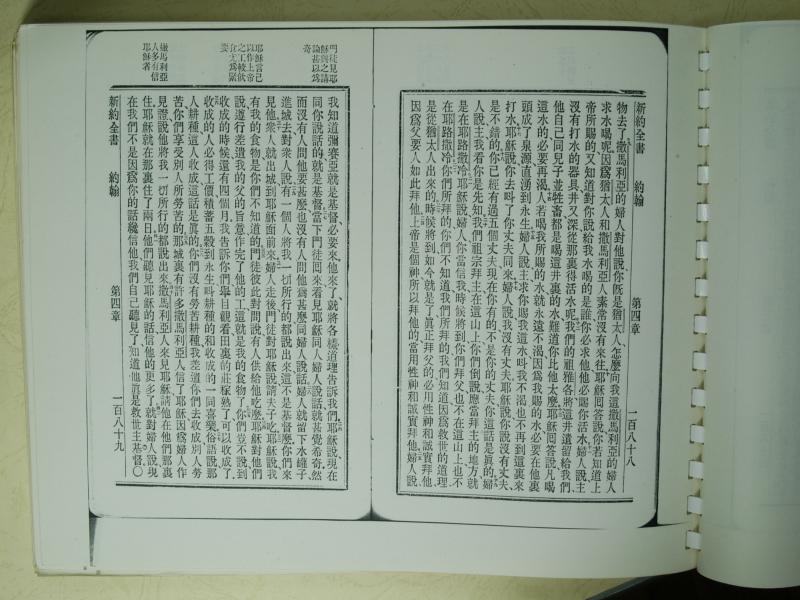 新約全書 約翰 第四章 一百八十八
物去了撒馬利亞的婦人對他說你旣是猶太人怎麼向我這撒馬利亞的婦人
求水喝呢因爲猶太人和撒馬利亞人素常沒有來往耶穌回答說你若知道上
帝所賜的又知道對你說給我水喝的是誰你必求他他必賜你活水婦人說主
沒有打水的器具井又深從那裏得活水呢我們的祖雅各將這井遺留給我們
他自己同兒子並牲畜都是喝這井裏的水難道你比他大麼耶穌回答說凡喝
這水的必要再渴人若喝我所賜的水就永遠不渴因爲我賜的水必要在他裏
頭成了泉源直湧到永生婦人說主求你賜我這水叫我不渴也不再到這裏來
打水耶穌說你去叫了你丈夫同來婦人說我沒有丈夫耶穌說你說沒有丈夫
是不錯的你已經有過五個丈夫現在你有的不是你的丈夫你這話是眞的婦
人說主我看你是先知我們祖宗拜主在這山上你們倒說應當拜主的地方就
是在耶路撒冷耶穌說婦人你當信我時候將到你們拜父也不在這山上也不
在耶路撒冷你們所拜的你們不知道我們所拜的我們知道因爲救世的道理
是從猶太人出來的時候將到如今就是了眞正拜父的必用性神和誠實拜他
因爲父要人如此拜他上帝是個神所以拜他的當用性神和誠實拜他婦人說
門徒見耶
穌與之講
論甚以爲
奇
耶穌言己
以作上帝
之工較飲
食尤爲緊
要
撒馬利亞
人多有信
耶穌者
新約全書 約翰 第四章 一百八十九
我知道彌賽亞就是基督必要來他來了就將各樣道理告訴我們耶穌說現在
同你說話的就是基督當下門徒回來看見耶穌同人婦人說話就甚覺希奇然
而沒有人問他要甚麼也沒有人問他爲甚麼同婦人說話婦人就留下水罐子
進城去對衆人說有一個人將我一切所行的都說出來這不是基督麼你們來
見他衆人就出城到耶穌面前來婦人走後門徒對耶穌說請夫子吃耶穌說我
有我的食物是你們不知道的門徒彼此對問說有人供給他吃麼耶穌對他們
說遵行差遣我的父的旨意作完了他的工這就是我的食物了你們豈不說到
收成的時候還有四個月我告訴你們舉目觀看田裏的莊稼熟了可以收成了
收成的人必得工價積蓄五穀到永生叫耕種的和收成的一同喜樂俗語說那
人耕種這人收成這話是眞的你們沒有勞苦耕種我差遣你們去收成別人勞
苦你們享受別人所勞苦的那城裏有許多撒馬利亞人信了耶穌因爲婦人作
見證說他將我一切所行的都說出來撒馬利亞人來見耶穌請他在他們那裏
住耶穌就在那裏住了兩日他們聽見耶穌的話信他的更多了就對婦人說現
在我們不是因爲你的話纔信他我們自己聽見了知道他眞是救世主基督〇